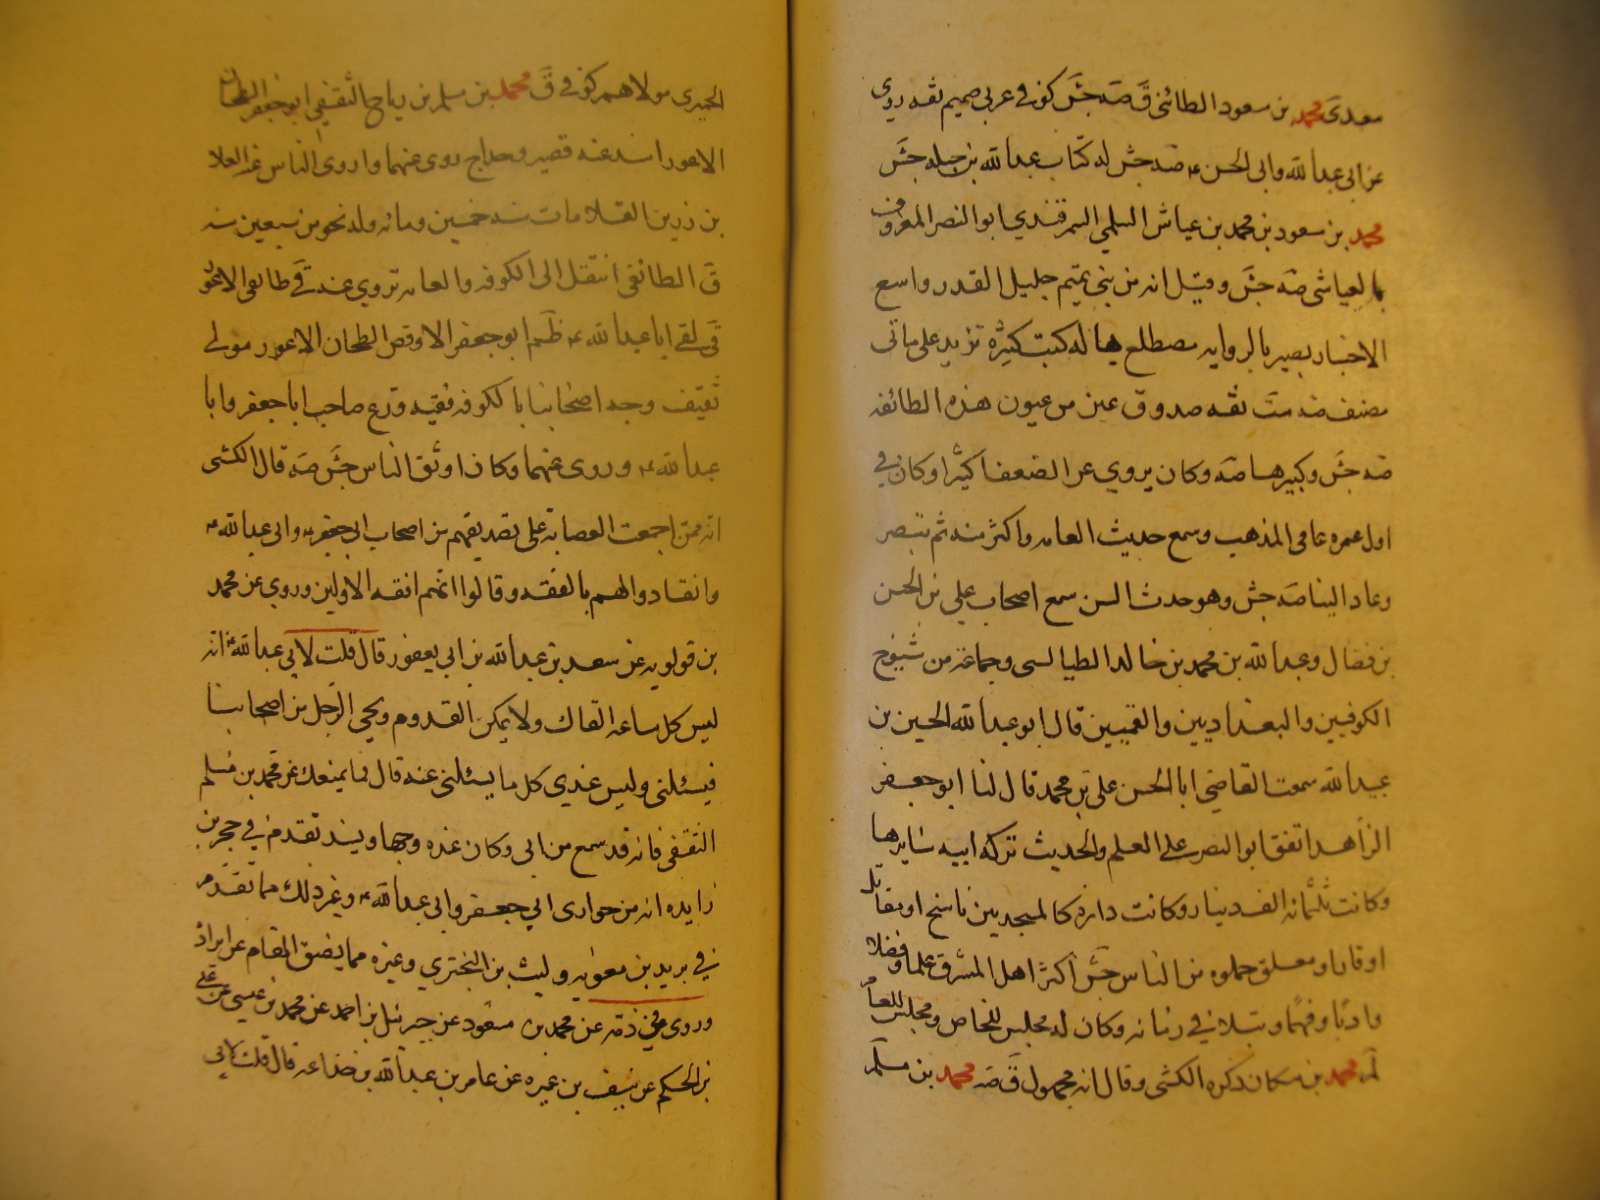 معدى محمد بن مسعود الطائي ق صه جش كوفي عربي صميم ثقه روى
عن ابي عبد الله وابي الحسن ع صه جش له كتاب عبد الله بن جبله جش
محمد بن مسعود بن محمد بن عياش السلمي السمرقندي ابو النصر المعروف
بالعياشي صه جش وقيل انه من بني تميم جليل القدر واسع
الاخبار بصير بالروايه مصطلع بها له كتب كثيره تزيد على ماتى
مصنف صه ست ثقه صدوق عين من عيون هذه الطائفه
صه جش وكبيرها صه وكان يروي عن الضعفا كثيرا وكان في
اول عمره عامى المذهب وسمع حديث العامه واكثر منه ثم تبصر
وعاد الينا صه جش وهو حدث السن سمع اصحاب علي بن الحسن
بن فضال وعبد الله بن محمد بن خالد الطيالسى وجماعه من شيوخ
الكوفيين والبغداديين والقميين قال ابو عبد الله الحسين بن
عبيد الله سمعت القاضى ابا الحسن على بن محمد قال لنا ابو جعفر
الزاهد انفق ابو النصر على العلم والحديث تركه ابيه سايرها
وكانت ثلثمائه الف دينار وكانت داره كالمسجد بين ناسخ او مقابل
او قار او معلق مملوه من الناس جش اكثر اهل المشرق علما وفضلا
وادبا وفهما ونبلا في زمانه وكان له مجلس للخاص ومجلس للعام
لم محمد بن مسكان ذكره الكشى وقال انه مجهول ق صه محمد بن مسلم
الحميرى مولاهم كوفي ق محمد بن مسلم بن رياح الثقفي ابو جعفر الطحان
الاعور اسند عنه قصير وحداج روى عنهما واروى الناس عنه العلا
بن رزين القلا مات سنه خمسين ومائه وله نحو من سبعين سنه
ق الطائفى انتقل الى الكوفه والعامه تروي عنه ق طائفى الاعور
ق لقى ابا عبد الله ع ظم ابو جعفر الاوقص الطحان الاعور مولى
ثقيف وجه اصحابنا بالكوفه فقيه ورع صاحب ابا جعفر وابا
عبد الله ع وروى عنهما وكان اوثق الناس جش صه قال الكشى
انه ممن اجمعت العصابه على تصديقهم من اصحاب ابي جعفر ع وابى عبد الله ع
وانقادوا لهم بالفقه وقالوا انهم افقه الاولين وروي عن محمد
بن قولويه عن سعد بن عبد الله بن ابي يعفور قال قلت لابي عبد الله ع انه
ليس كل ساعه القاك ولا يمكن القدوم ويجى الرجل من اصحابنا
فيسئلنى وليس عندي كل ما يسئلنى عنه قال فما يمنعك عن محمد بن مسلم
الثقفى فانه قد سمع من ابى وكان عنده وجيها ويسند تقدم في حجر بن
زايده انه من حوارى ابي جعفر وابي عبد الله ع وغير ذلك مما تقدم
في بريد بن معويه وليث بن البختري وغيره مما يضيق المقام عن ايراده
وروى في ذمه عن محمد بن مسعود عن جبرئيل بن احمد عن محمد بن عيسى عن على
بن الحكم عن سيف بن عميره عن عامر بن عبد الله بن خداعه قال قلت لابي